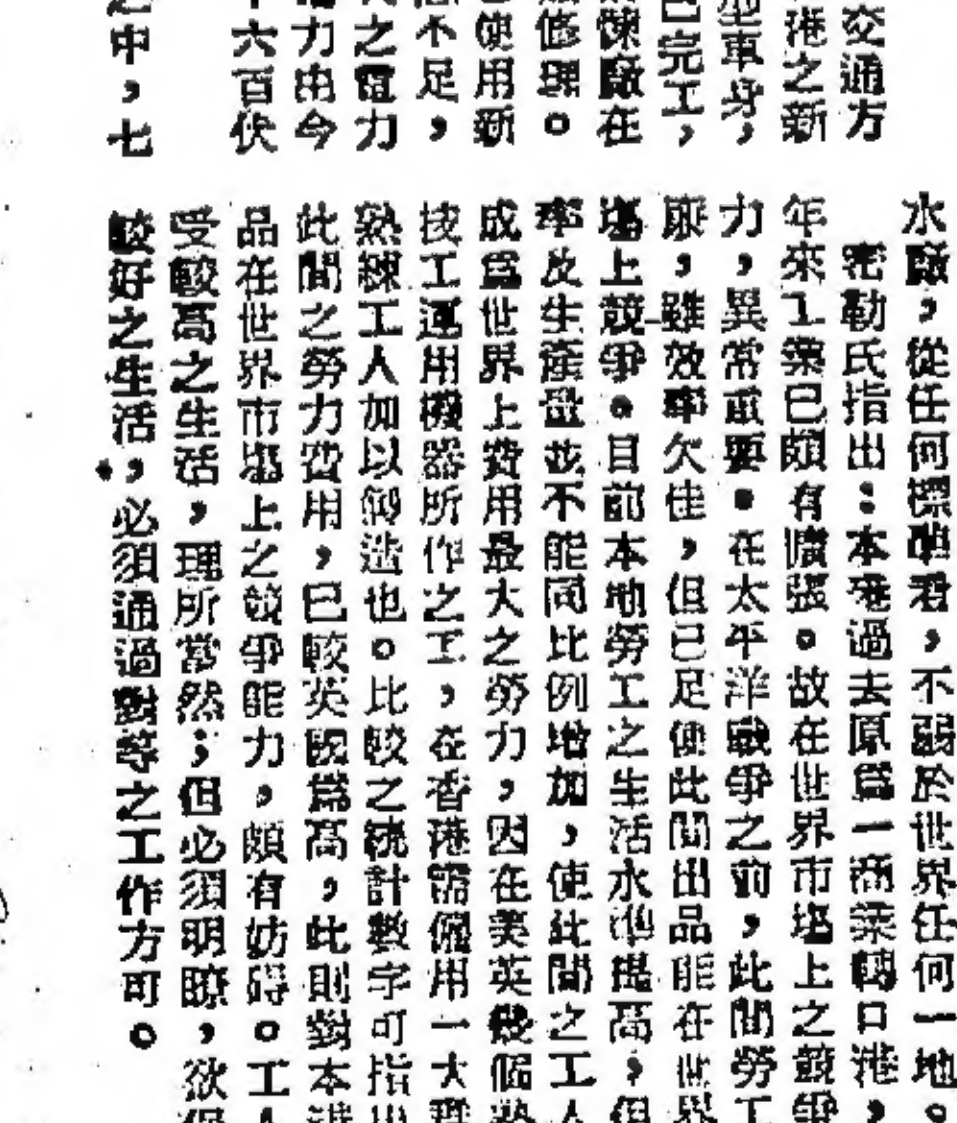 交通方
港之新
型車身,
已完工,
煉廠在
修理。
使用新
不足,
之電力
力由今
六百伏
之中,七
水廠,從任何標準看,不弱於世界任何一地。
密勒氏指出:本港過去原爲一商業轉口港,
年來工業已頗有擴張。故在世界市場上之競爭
力,異常重要。在太平洋戰爭之前,此間勞工
廉,雖效率欠佳,但已足使此間出品能在世界
場上競爭。目前本地勞工之生活水準提高,但
率及生產量並不能同比例增加,使此間之工人
成爲世界上費用最大之勞力,因在美英幾個熟
技工運用機器所作之工,在香港需僱用一大群
熟練工人加以造也。比較之統計數字可指出
此間之勞力費用,已較英國爲高,此則對本港
品在世界市場上之競爭能力,頗有妨碍。工
受較高之生活,理所當然;但必須明瞭,欲保
較好之生活,必須通過對等之工作方可。